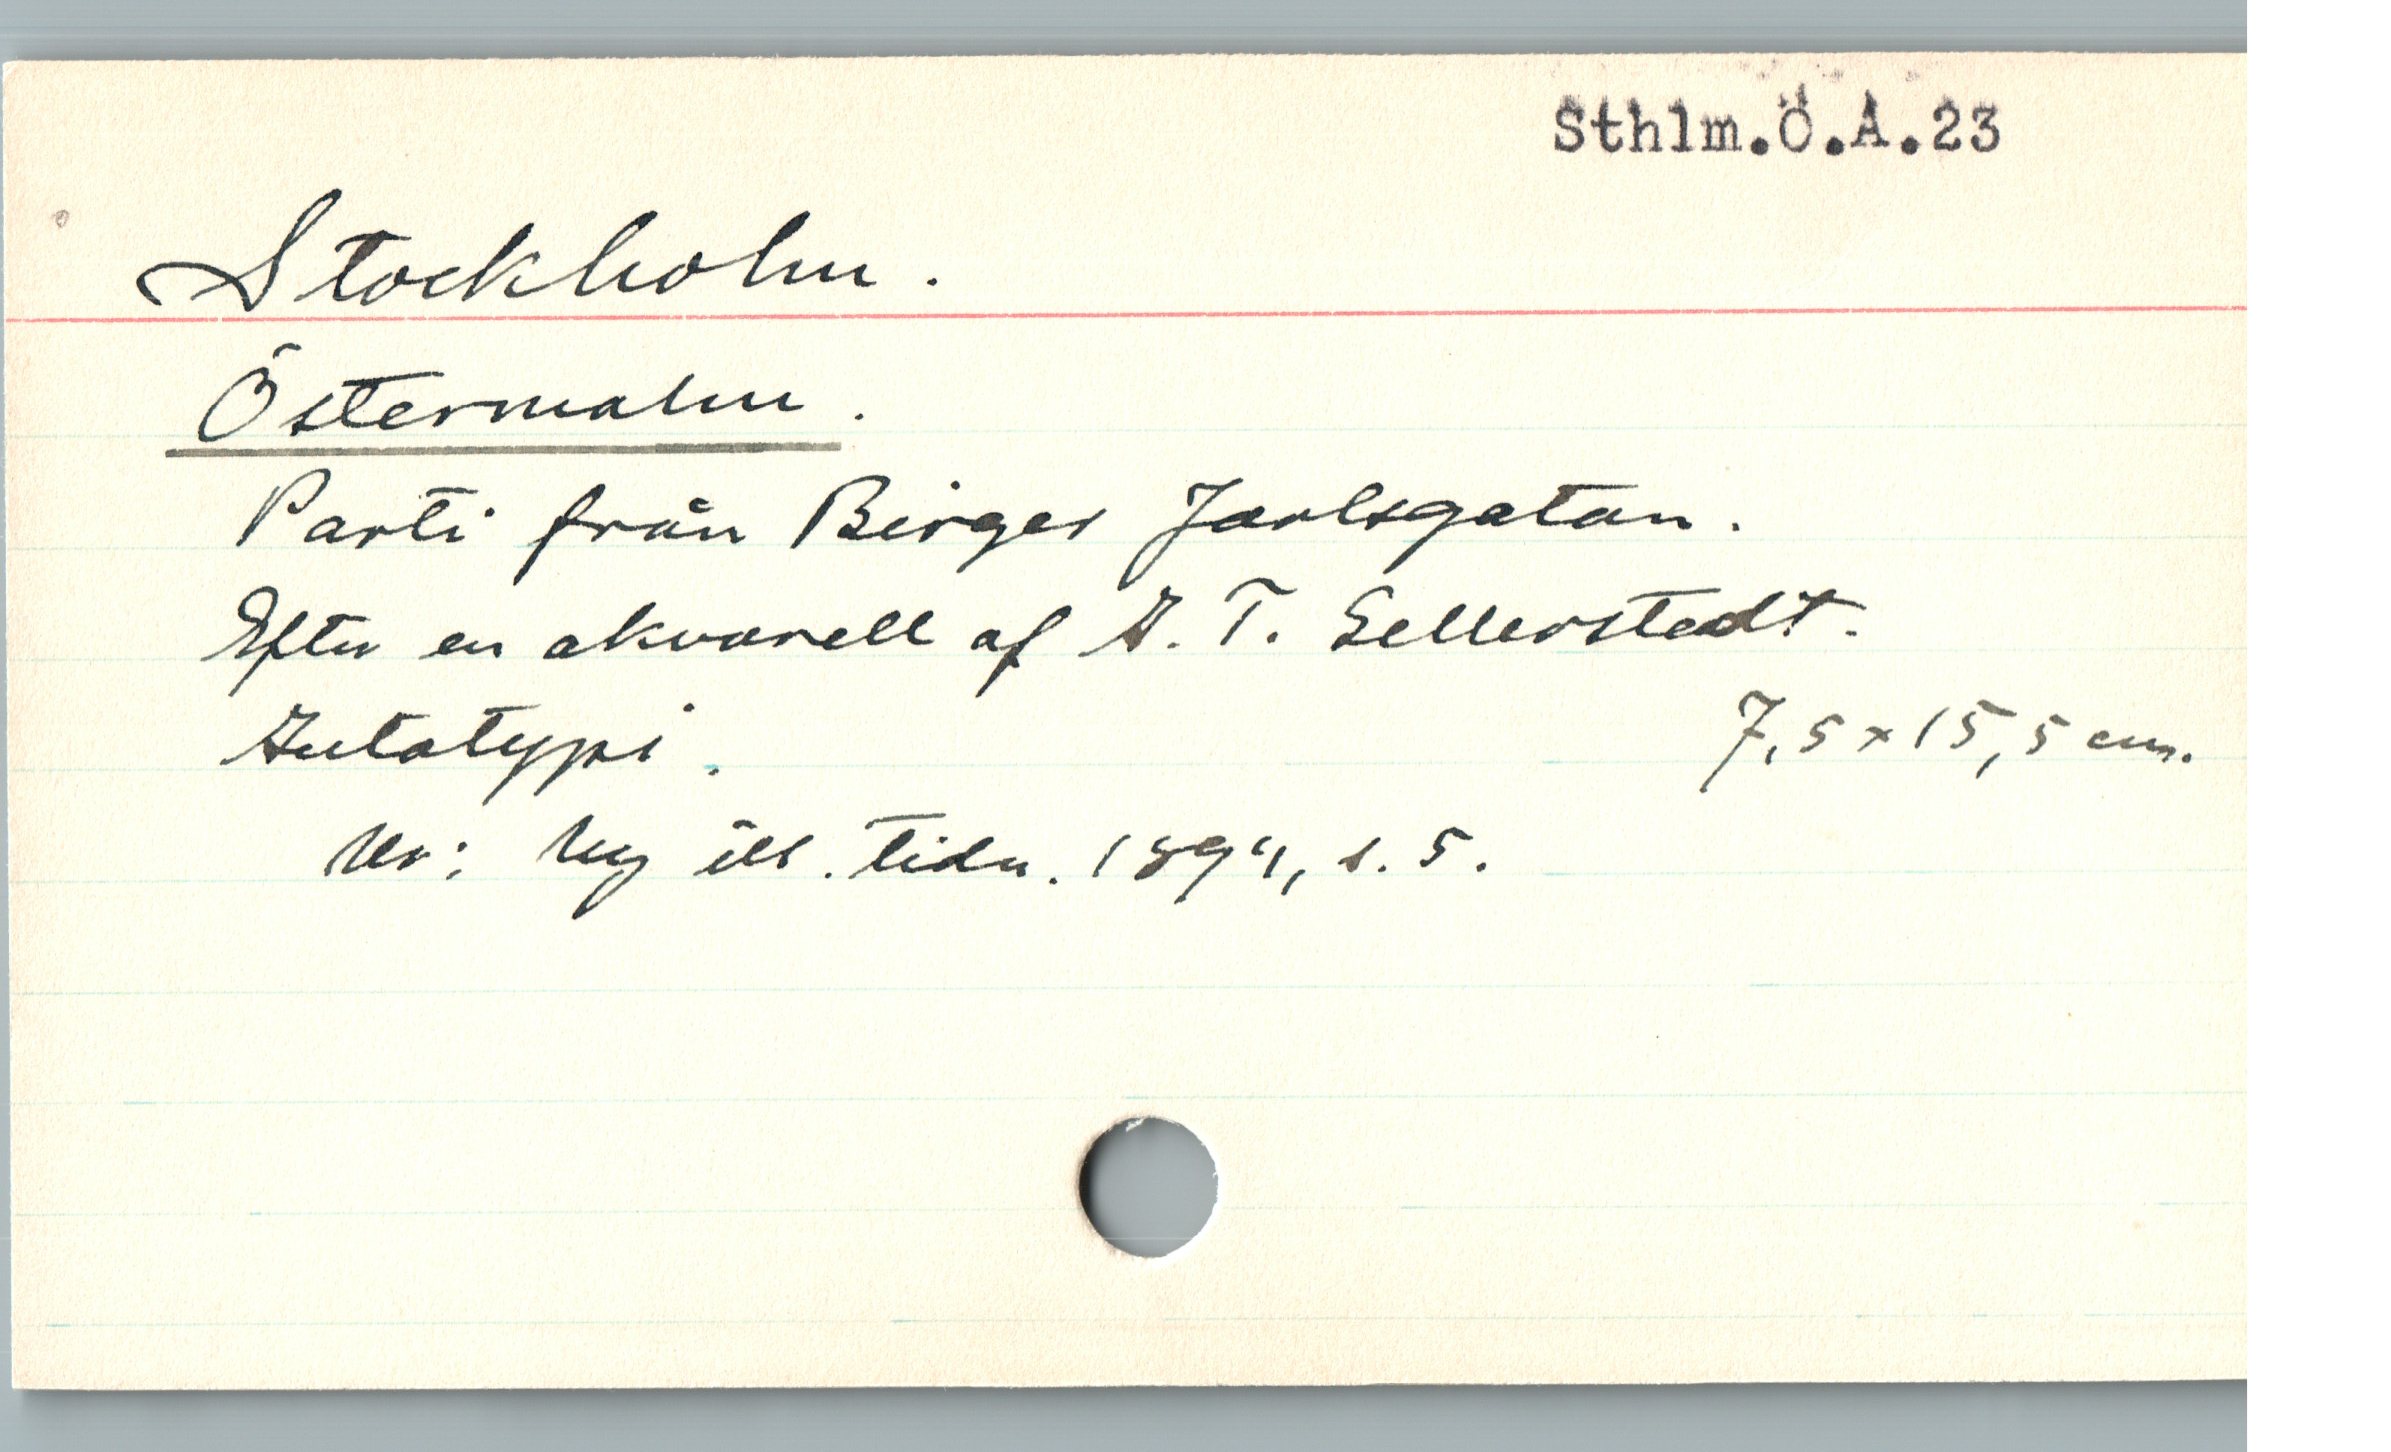 Sthlm.Ö.A.23
Stockholm.
Östermalm.
Parti från Birger Jarlsgatan.
Efter en akvarell af A. T. Gellerstedt.
Autotypi.
7,5 x 15,5 cm.
Ur: Ny ill. tidn. 1894, s. 5.